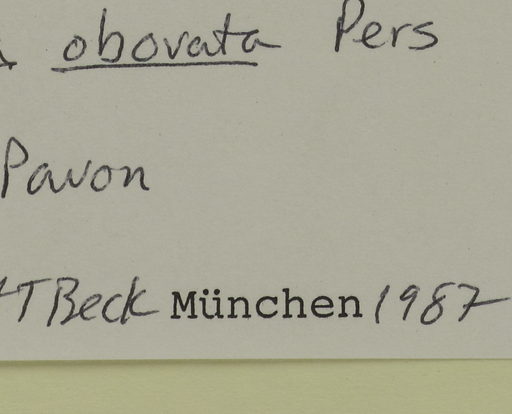 obovata Pers
Pavon
T Beck München 1987